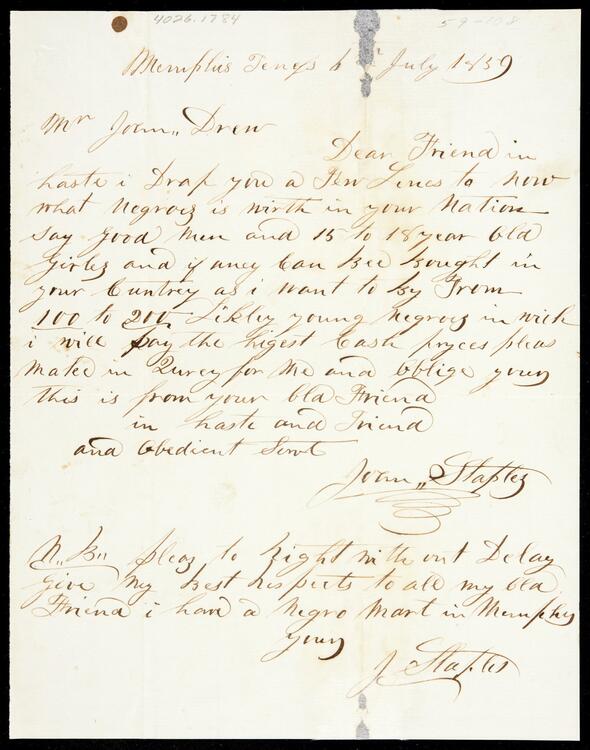 4026.1784
59-108
Memphis Tenys 6th July 1839
Mr John Drew
Dear Friend in
haste i Drap you a Few Lines to now
what Negroes is wirth in your Nation
say good Men and 15 to 18 year old
Girles and if aney Can Bee Bought in
your Cuntrey as i want to By From
100 to 200 Likley young Negroes in wich
i will Pay the higest Cash pryces pleas
make in Qurey for Me and Oblige yours
this is from your Old Friend
in haste and Friend
and Obedient Servt
John Staples
N. B. pleas to Right with out Delay
Give My Best Respects to all my Old
Friend i have a Negro Mart in Memphis
yours
J Staples